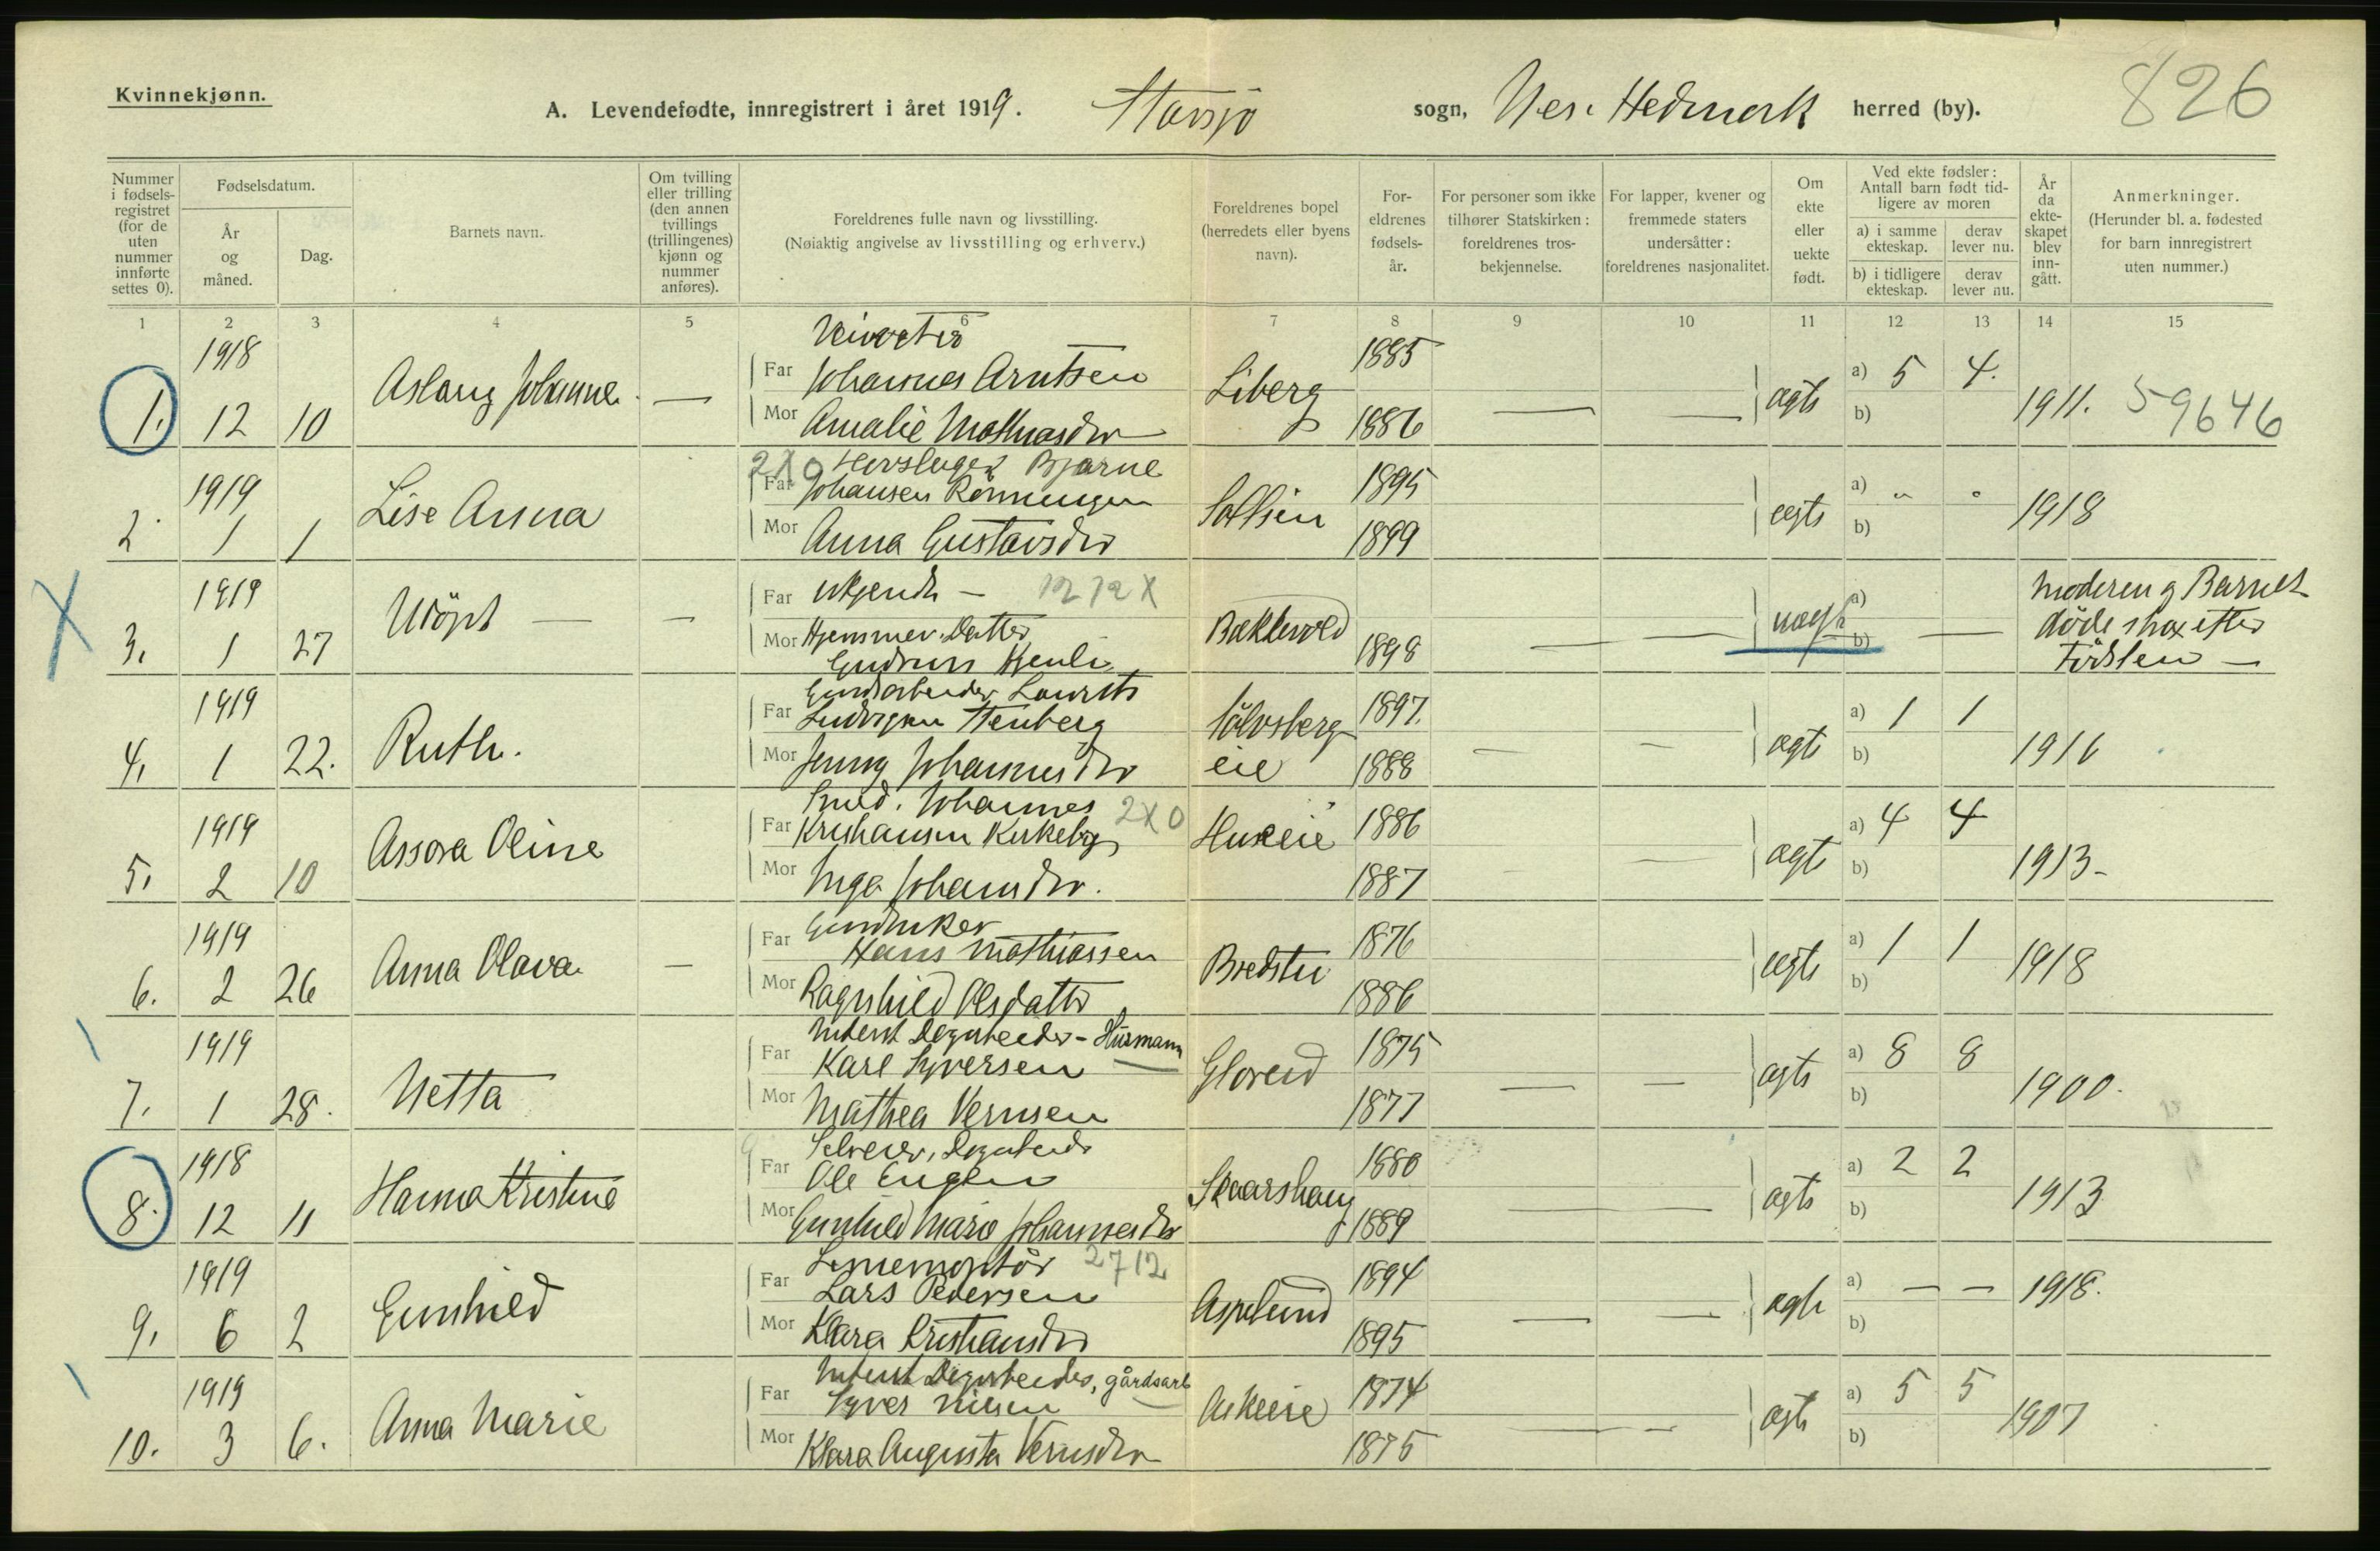 Kvinnekjønn.
A. Levendefødte, innregistrert i året 1919. Stavsjø sogn, Nes. Hedmark herred (by). 826
Nummer i fødselsregistret (for de uten nummer innførte settes 0).
Fødselsdatum.
År og måned.
Dag.
Barnets navn.
Om tvilling eller trilling (den annen tvillings (trillingenes) kjønn og nummer anføres).
Foreldrenes fulle navn og livsstilling.
(Nøiaktig angivelse av livsstilling og erhverv.)
Foreldrenes bopel (herredets eller byens navn).
Foreldrenes fødselsår.
For personer som ikke tilhører Statskirken: foreldrenes trosbekjennelse.
For lapper, kvener og fremmede staters undersåtter: foreldrenes nasjonalitet.
Om ekte eller uekte født.
Ved ekte fødsler: Antall barn født tidligere av moren
a) i samme ekteskap.
derav lever nu.
b) i tidligere ekteskap.
derav lever nu.
År da ekteskapet blev inngått.
Anmerkninger.
(Herunder bl. a. fødested for barn innregistrert uten nummer.)
1 2 3 4 5 6 7 8 9 10 11 12 13 14 15
1918
1. 12 10 Aslaug Johanne —
Far Johannes Arntsen Liberg 1885
Mor Amalie Mathiasdtr 1886
— — ægte a) 5 4. b) 1911. 59646
1919
2. 1 1 Lise Anna
2X0 Bjarne
Far Johansen Rønningen 1895
Mor Anna Gustavsdtr 1899
ægte a) " " b) 1918
1919
3. 1 27 Udöpt — —
Far ukjendt — 1212X
Mor Hjemmev. Datter Gudrun 1898
— — uægte a) b) —
Moderen og Barnet døde strax efter Fødslen —
1919
4. 1 22. Ruth.
Gaardsarbeider Laurits
Far Ludvigsen Stenberg Sölvsberg 1897.
Mor Jenny Johannesdtr eie 1888
— — ægte a) 1 1 b) 1916
1919
5. 2 10 Assora Oline
Smed. Johannes 2X0
Far Kristiansen Kirkeby Huseeie 1886
Mor Inga Johansdtr. 1887
— — ægte a) 4 4 b) 1913-
1919
6. 2 26 Anna Olava —
Gaardbruker
Far Hans Mathiassen Bredstu 1876
Mor Ragnhild Olsdatter 1886
ægte a) 1 1 b) 1918
1919
7. 1 28. Netta
- Husmann
Far Karl Syversen Gloreid 1875
Mor Mathea Vernsen 1877
— — ægte a) 8 8 b) 1900.
1918
8. 12 11 Hanna Kristine
Selveier, Dagarbeid
Far Ole Engen Skaarshaug 1880
Mor Gunhild Marie Johannesdtr 1889
— — ægte a) 2 2 b) 1913
1919
9. 6 2 Gunhild
Linjemontör 2712
Far Lars Pedersen Aspelund 1894
Mor Klara Kristiansdtr 1895
— — ægte a) — — b) 1918.
1919
10. 3 6. Anna Marie
gårdsarb
Far Syver Nilsen Aukeeie 1874
Mor Klara Augusta Vernsdtr 1875
— — ægte a) 5 5 b) 1907